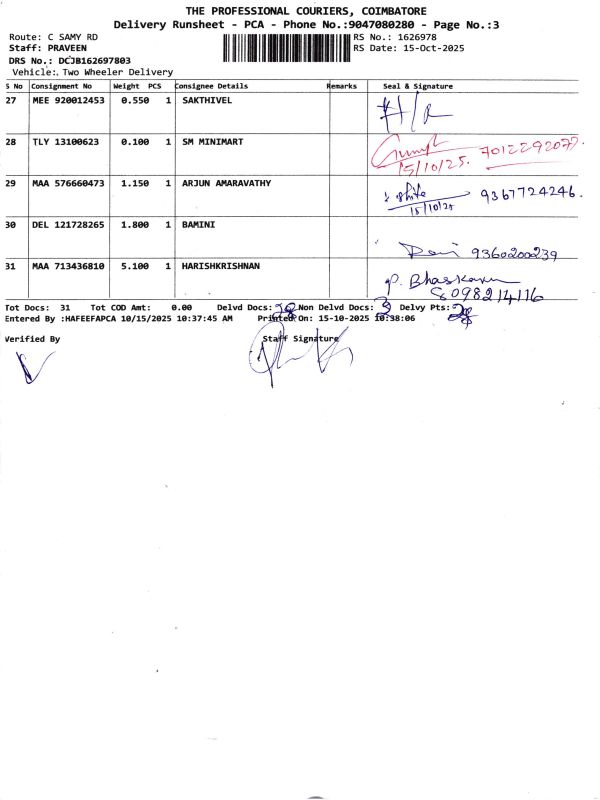 THE PROFESSIONAL COURIERS, COIMBATORE
Delivery Runsheet - PCA - Phone No.:9047080280 - Page No.:3
Route: C SAMY RD RS No.: 1626978
Staff: PRAVEEN RS Date: 15-Oct-2025
DRS No.: DCJB162697803
Vehicle:. Two Wheeler Delivery
S No Consignment No Weight PCS Consignee Details Remarks Seal & Signature
27 MEE 920012453 0.550 1 SAKTHIVEL H/R
28 TLY 13100623 0.100 1 SM MINIMART 7012292077.
15/10/25.
29 MAA 576660473 1.150 1 ARJUN AMARAVATHY 9367724246.
15/10/25
30 DEL 121728265 1.800 1 BAMINI
9360200239
31 MAA 713436810 5.100 1 HARISHKRISHNAN P. Bhaskaran
8098214116
Tot Docs: 31 Tot COD Amt: 0.00 Delvd Docs: 28 Non Delvd Docs: 3 Delvy Pts: 28
Entered By :HAFEEFAPCA 10/15/2025 10:37:45 AM Printed On: 15-10-2025 10:38:06
Verified By Staff Signature